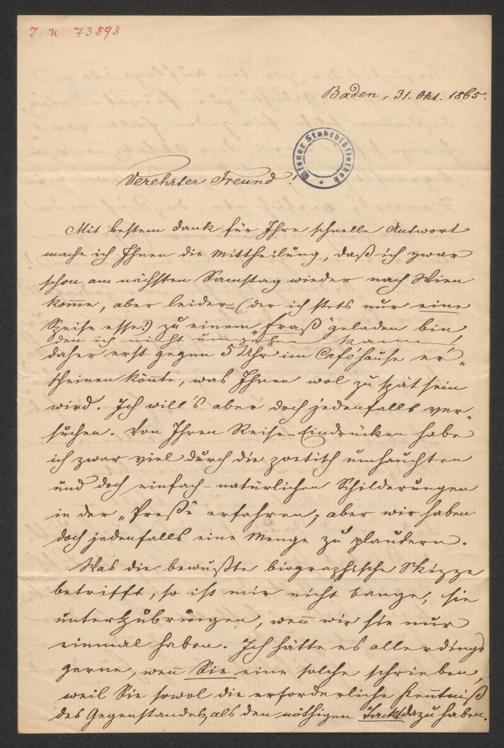 I. N. 73898
Baden, 31. Okt. 1865.
Wiener Stadtbibliothek
Verehrter Freund!
Mit bestem Dank für Ihre schnelle Antwort
mache ich Ihnen die Mittheilung, daß ich zwar
schon am nächsten Samstag wieder nach Wien
kome, aber leider (der ich stets nur eine
Speise esse!) zu einem „Fraß" geladen bin,
den ich nicht umgehen kann,
daher erst gegen 5 Uhr im Caféhause er-
scheinen könte, was Ihnen wol zu spät sein
wird. Ich will's aber doch jedenfalls ver-
suchen. Von Ihren Reise-Eindrücken habe
ich zwar viel durch die poetisch umhauchten
und doch einfach natürlichen Schilderungen
in der „Presse" erfahren, aber wir haben
doch jedenfalls eine Menge zu plaudern.
Was die bewußte biographische Skizze
betrifft, so ist mir nicht bange, sie
unterzubringen, wen wir sie nur
einmal haben. Ich hätte es allerdings
gerne, wen Sie eine solche schrieben,
weil Sie sowol die erforderliche Kentniß
des Gegenstandes, als den nöthigen Takt dazu haben.